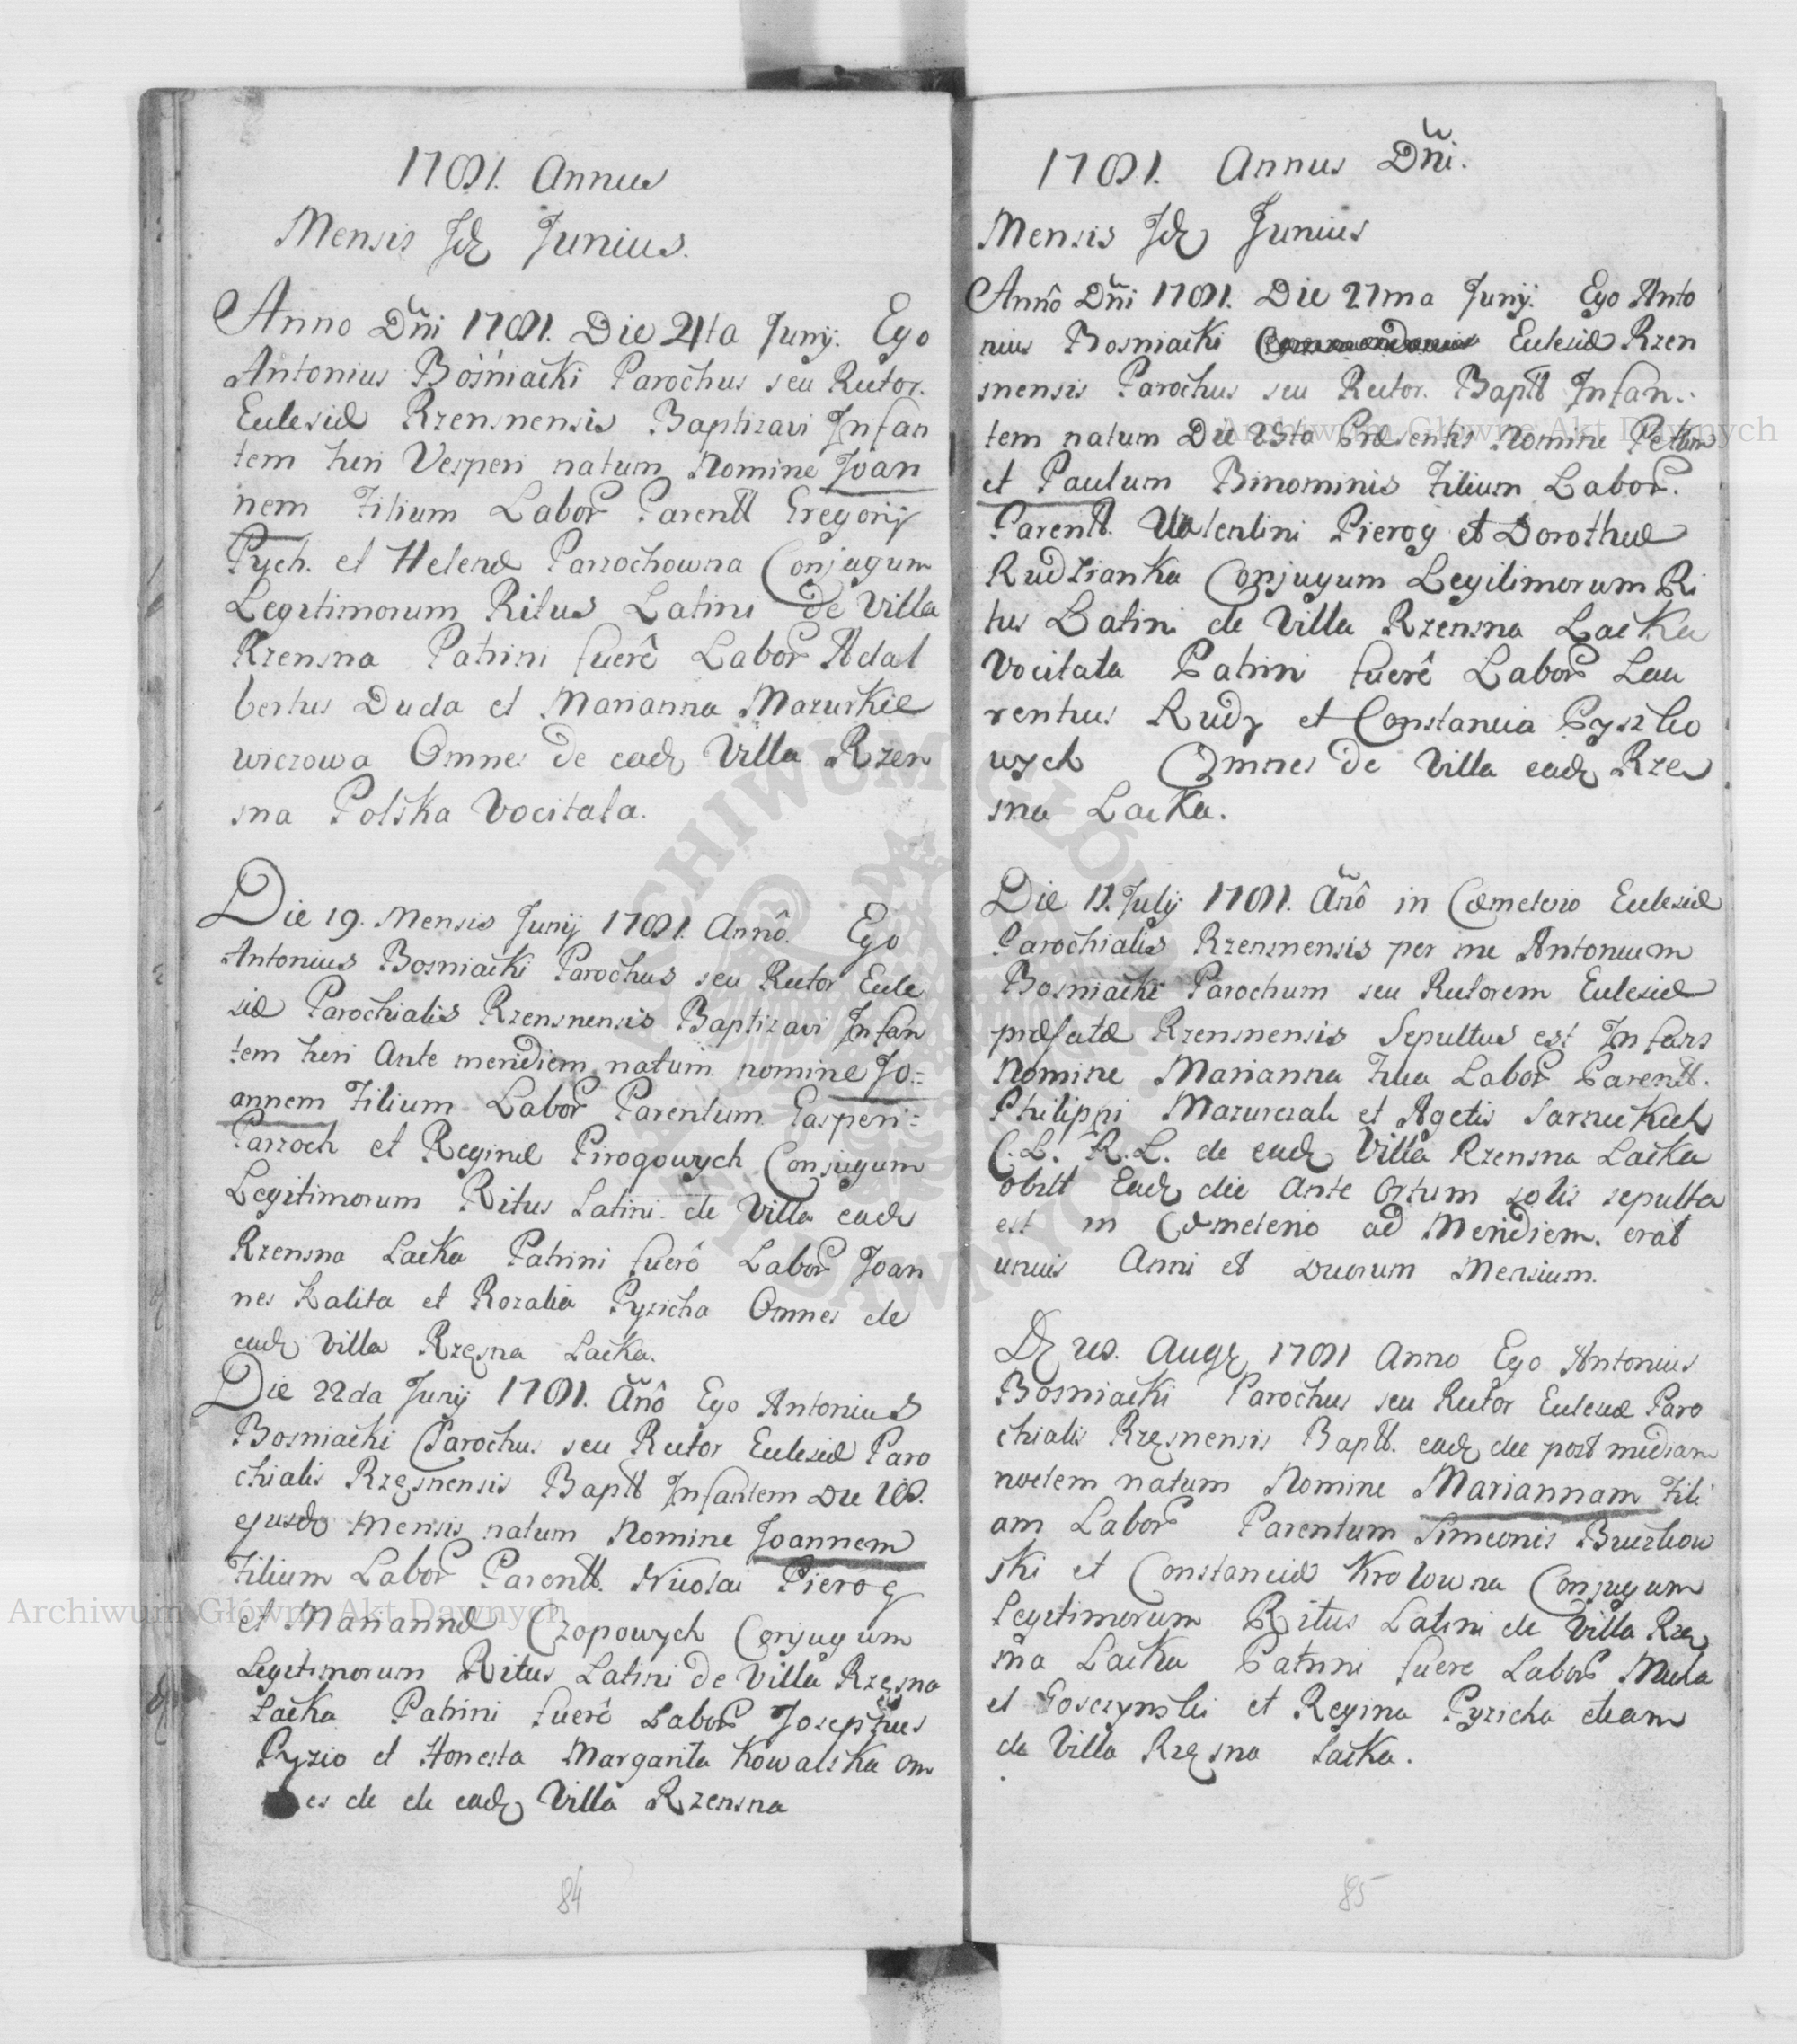 1781. Annus
Mensis Idē Junius.
Anno Dñi 1781. Die 4ta Junij. Ego
Antonius Bośniacki Parochus seu Rector.
Ecclesiæ Rzensnensis Baptizavi Infan
tem heri Vesperi natum Nomine Joan
nem Filium Labor Parentt Gregorij
Pych. et Helenæ Parzochowna Conjugum
Legitimorum Ritus Latini de Villa
Rzensna Patrini fuerê Labor Adal
bertus Duda et Marianna Mazurkie
wiczowa Omnes de eadē Villa Rzen
sna Polska Vocitata.
Die 19. Mensis Junij 1781. Annô. Ego
Antonius Bosniacki Parochus seu Rector Eccle
siæ Parochialis Rzensnensis Baptizavi Infan
tem heri Ante meridiem natum nomine Jo=
annem Filium Labor Parentum Gasperi=
Parzoch et Reginæ Pirogowych Conjugum
Legitimorum Ritus Latini de Villa eadē
Rzensna Lacka Patrini fuerê Labor Joan
nes Kalita et Rozalia Pyzicha Omnes de
eadē Villa Rzęsna Lacka.
Die 22da Junij 1781. Añô Ego Antonius
Bosniacki Parochus seu Rector Ecclesiæ Paro
chialis Rzęsnensis Baptt Infantem Die 18.
ejusdē Mensis natum Nomine Joannem
Filium Labor Parentt. Nicolai Pierog
et Mariannæ Czopowych Conjugum
Legitimorum Ritus Latini de Villa Rzęsna
Lacka Patrini fuerê Labor Josephus
Pyzio et Honesta Margarita Kowalska om
es de de eadē Villa Rzensna
84
1781. Annus Dñi.
Mensis Idē Junius
Annô Dñi 1781. Die 27ma Junij. Ego Anto
nius Bosniacki Ecclesiæ Rzen
snensis Parochus seu Rector. Baptt Infan=
tem natum Die 25ta Præsentis Nomine Petrum
et Paulum Binominis Filium Labor.
Parentt. Valentini Pierog et Dorotheæ
Rudzianka Conjugum Legitimorum Ri
tus Latini de Villa Rzensna Lacka
Vocitata Patrini fuerê Labor Lau
rentius Rudy et Constancia Pyszko
wych Omnes de Villa eadē Rzę
sna Lacka.
Die 11. Julij 1781. Añô in Cæmeterio Ecclesiæ
Parochialis Rzensnensis per me Antonium
Bosniacki Parochum seu Rectorem Ecclesiæ
præfatæ Rzensnensis Sepultus est Infans
Nomine Marianna Filia Labor Parentt.
Philippi Mazurczak et Agetis Sarneckich
C. L. R. L. de eadē Villa Rzensna Lacka
obiit Eadē die Ante Ortum solis sepulta
est in Cæmeterio ad Meridiem. erat
unius Anni et Duorum Mensium.
Dē 28. Augē 1781 Anno Ego Antonius
Bosniacki Parochus seu Rector Ecclesiæ Paro
chialis Rzęsnensis Baptt. eadē die post mediam
noctem natum Nomine Mariannam Fili
am Labor Parentum Simeonis Bruzkow
ski et Constanciæ Krolowna Conjugum
Legitimorum Ritus Latini de Villa Rzę
sna Lacka Patrini fuere Labor Micha
el Goszczynski et Regina Pyzicha etiam
de Villa Rzęsna Lacka.
85
Archiwum Główne Akt Dawnych